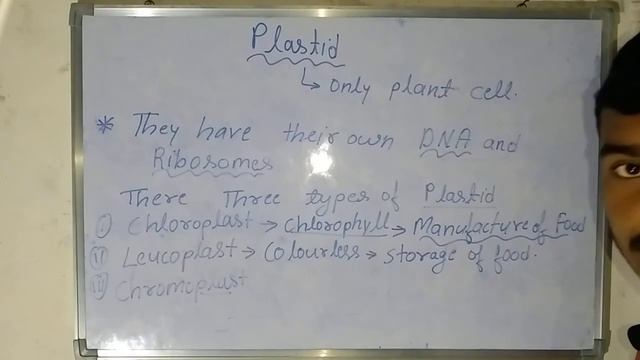 Plastid
↳ only plant cell.
* They have their own DNA and
Ribosomes
There Three types of Plastid
(i) Chloroplast → Chlorophyll → Manufacture of Food
(ii) Leucoplast → Colourless → storage of food.
(iii) Chromoplast